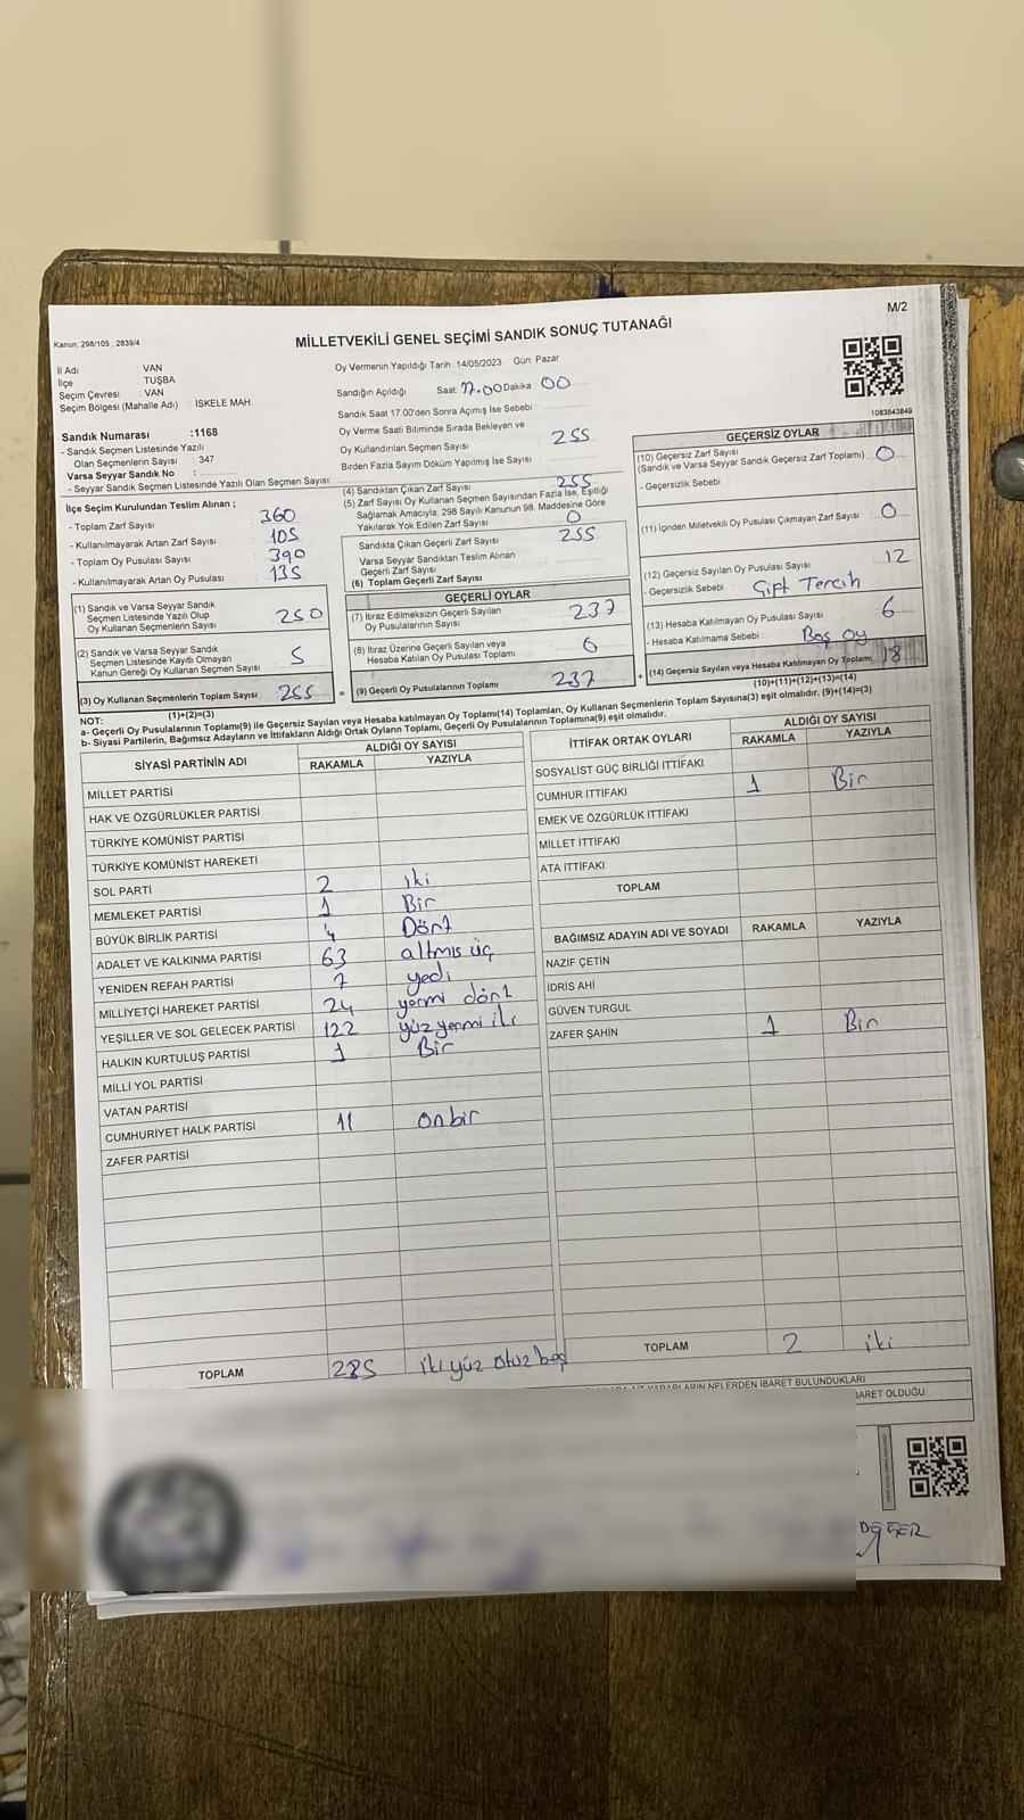 M/2
Kanun: 298/105 ; 2839/4
MİLLETVEKİLİ GENEL SEÇİMİ SANDIK SONUÇ TUTANAĞI
İl Adı VAN
İlçe TUŞBA
Seçim Çevresi : VAN
Seçim Bölgesi (Mahalle Adı) : İSKELE MAH.
Sandık Numarası :1168
- Sandık Seçmen Listesinde Yazılı
Olan Seçmenlerin Sayısı : 347
Varsa Seyyar Sandık No :
- Seyyar Sandık Seçmen Listesinde Yazılı Olan Seçmen Sayısı
Oy Vermenin Yapıldığı Tarih :14/05/2023 Gün: Pazar
Sandığın Açıldığı Saat: 17.00 Dakika 00
Sandık Saat 17.00'den Sonra Açımış İse Sebebi
Oy Verme Saati Bitiminde Sırada Bekleyen ve
Oy Kullandırılan Seçmen Sayısı 255
Birden Fazla Sayım Döküm Yapılmış İse Sayısı
1083843849
İlçe Seçim Kurulundan Teslim Alınan ;
- Toplam Zarf Sayısı 360
- Kullanılmayarak Artan Zarf Sayısı 105
- Toplam Oy Pusulası Sayısı 390
- Kullanılmayarak Artan Oy Pusulası 135
(1) Sandık ve Varsa Seyyar Sandık
Seçmen Listesinde Yazılı Olup
Oy Kullanan Seçmenlerin Sayısı 250
(2) Sandık ve Varsa Seyyar Sandık
Seçmen Listesinde Kayıtlı Olmayan
Kanun Gereği Oy Kullanan Seçmen Sayısı 5
(3) Oy Kullanan Seçmenlerin Toplam Sayısı 255
(1)+(2)=(3)
(4) Sandıktan Çıkan Zarf Sayısı 255
(5) Zarf Sayısı Oy Kullanan Seçmen Sayısından Fazla İse, Eşitliği
Sağlamak Amacıyla, 298 Sayılı Kanunun 98. Maddesine Göre
Yakılarak Yok Edilen Zarf Sayısı 0
Sandıkta Çıkan Geçerli Zarf Sayısı 255
Varsa Seyyar Sandıktan Teslim Alınan
Geçerli Zarf Sayısı
(6) Toplam Geçerli Zarf Sayısı
GEÇERLİ OYLAR
(7) İtiraz Edilmeksizin Geçerli Sayılan
Oy Pusulalarının Sayısı 237
(8) İtiraz Üzerine Geçerli Sayılan veya
Hesaba Katılan Oy Pusulası Toplamı 0
= (9) Geçerli Oy Pusulalarının Toplamı 237 +
GEÇERSİZ OYLAR
(10) Geçersiz Zarf Sayısı
(Sandık ve Varsa Seyyar Sandık Geçersiz Zarf Toplamı) 0
- Geçersizlik Sebebi
(11) İçinden Milletvekili Oy Pusulası Çıkmayan Zarf Sayısı 0
(12) Geçersiz Sayılan Oy Pusulası Sayısı 12
- Geçersizlik Sebebi Çift Tercih
(13) Hesaba Katılmayan Oy Pusulası Sayısı 6
- Hesaba Katılmama Sebebi : Boş oy
(14) Geçersiz Sayılan veya Hesaba Katılmayan Oy Toplamı 18
(10)+(11)+(12)+(13)=(14)
NOT:
a- Geçerli Oy Pusulalarının Toplamı(9) ile Geçersiz Sayılan veya Hesaba katılmayan Oy Toplamı(14) Toplamları, Oy Kullanan Seçmenlerin Toplam Sayısına(3) eşit olmalıdır. (9)+(14)=(3)
b- Siyasi Partilerin, Bağımsız Adayların ve İttifakların Aldığı Ortak Oyların Toplamı, Geçerli Oy Pusulalarının Toplamına(9) eşit olmalıdır.
SİYASİ PARTİNİN ADI ALDIĞI OY SAYISI
RAKAMLA YAZIYLA
MİLLET PARTİSİ
HAK VE ÖZGÜRLÜKLER PARTİSİ
TÜRKİYE KOMÜNİST PARTİSİ
TÜRKİYE KOMÜNİST HAREKETİ
SOL PARTİ 2 iki
MEMLEKET PARTİSİ 1 Bir
BÜYÜK BİRLİK PARTİSİ 4 Dört
ADALET VE KALKINMA PARTİSİ 63 altmıs üç
YENİDEN REFAH PARTİSİ 7 yedi
MİLLİYETÇİ HAREKET PARTİSİ 24 yermi dört
YEŞİLLER VE SOL GELECEK PARTİSİ 122 yüz yermi iki
HALKIN KURTULUŞ PARTİSİ 1 Bir
MİLLİ YOL PARTİSİ
VATAN PARTİSİ
CUMHURİYET HALK PARTİSİ 11 onbir
ZAFER PARTİSİ
TOPLAM 235 iki yüz otuz beş
İTTİFAK ORTAK OYLARI ALDIĞI OY SAYISI
RAKAMLA YAZIYLA
SOSYALİST GÜÇ BİRLİĞİ İTTİFAKI
CUMHUR İTTİFAKI 1 Bir
EMEK VE ÖZGÜRLÜK İTTİFAKI
MİLLET İTTİFAKI
ATA İTTİFAKI
TOPLAM
BAĞIMSIZ ADAYIN ADI VE SOYADI RAKAMLA YAZIYLA
NAZİF ÇETİN
İDRİS AHİ
GÜVEN TURGUL
ZAFER ŞAHİN 1 Bir
TOPLAM 2 iki
NELERDEN İBARET BULUNDUKLARI
İBARET OLDUĞU